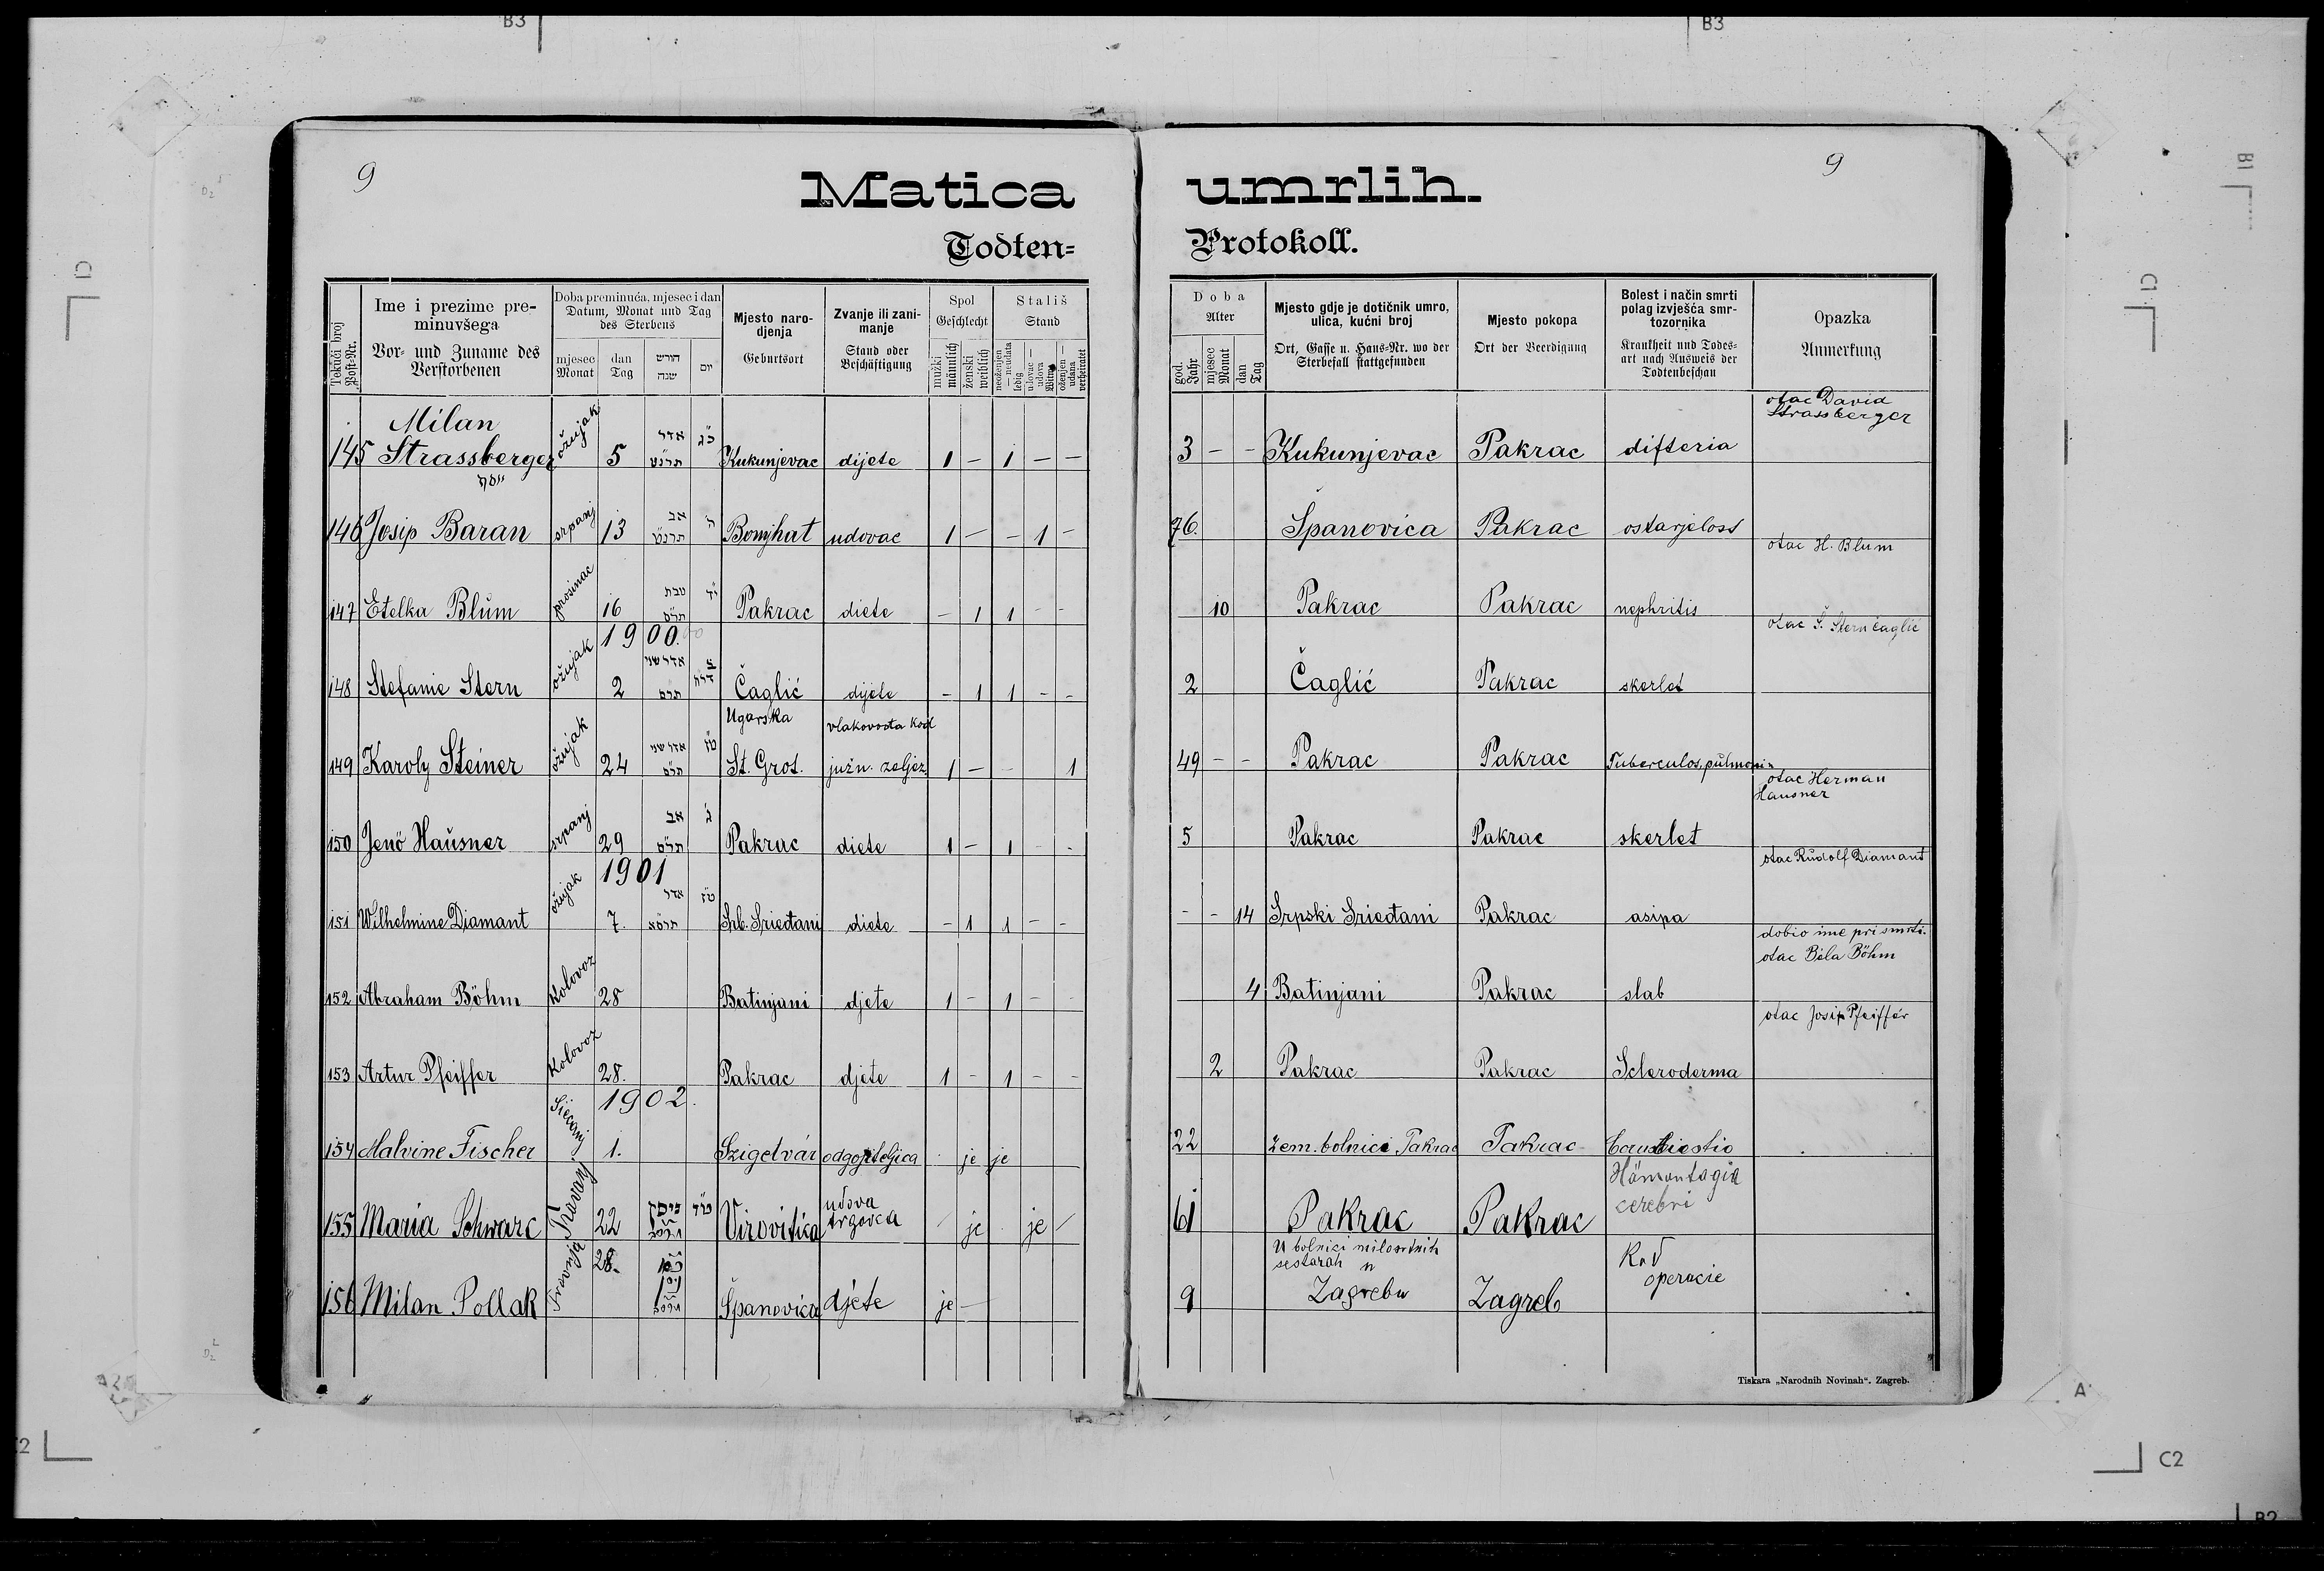 B3
B3
9
9
Matica umrlih.
Todten= Protokoll.
Tekući broj Post=Nr.
Ime i prezime preminuvšega
Vor= und Zuname des Verstorbenen
Doba preminuća, mjesec i dan
Datum, Monat und Tag des Sterbens
mjesec Monat
dan Tag
חודש שנה
יום
Mjesto narodjenja
Geburtsort
Zvanje ili zanimanje
Stand oder Beschäftigung
Spol
Geschlecht
mužki männlich
ženski weiblich
Stališ
Stand
neoženjen — neudata ledig
udovac — udova Witwe
oženjen — udana verheiratet
Doba
Alter
god. Jahr
mjesec Monat
dan Tag
Mjesto gdje je dotičnik umro, ulica, kućni broj
Ort, Gasse u. Haus=Nr. wo der Sterbefall stattgefunden
Mjesto pokopa
Ort der Beerdigung
Bolest i način smrti polag izvješća smrtozornika
Krankheit und Todesart nach Ausweis der Todtenbeschau
Opazka
Anmerkung
145 Milan Strassberger ožujak 5 אדר תרנט כ״ג Kukunjevac dijete 1 — 1 — — 3 — — Kukunjevac Pakrac difteria otac David Strassberger
146 Josip Baran srpanj 13 אב תרנט ה Bonyhat udovac 1 — — 1 — 76. Španovica Pakrac ostarjelost
147 Etelka Blŭm prosinac 16 טבת תרס Pakrac diete — 1 1 — — 10 Pakrac Pakrac nephritis otac H. Blum
1900.
148 Stefanie Stern ožujak 2 אדר שני תרס Čaglić dijete — 1 1 — — 2 Čaglić Pakrac skerlet otac Š. Stern čaglić
149 Karoly Steiner ožujak 24 אדר שני תרס Ugarska St. Grot. vlakovođa kod južn. zeljez. 1 — — 1 49 — — Pakrac Pakrac Tuberculos. pŭlmonis
150 Jenö Haŭsner srpanj 29 אב תרס ג Pakrac diete 1 — 1 — — 5 Pakrac Pakrac skerlet otac Herman Hausner
1901
151 Wilhelmine Diamant ožujak 7. אדר תרסא Srb. Sriedani diete — 1 1 — — — — 14 Srpski Sriedani Pakrac asipa otac Rŭdolf Diamant
152 Abraham Böhm Kolovoz 28 Batinjani djete 1 — 1 — — 4 Batinjani Pakrac slab dobio ime pri smrti. otac Béla Böhm
153 Artur Pfeiffer Kolovoz 28. Pakrac djete 1 — 1 — — 2 Pakrac Pakrac Scleroderma otac Josip Pfeiffer
1902.
154 Malvine Fischer Siečanj 1. Szigetvár odgojiteljica je je 22 zem. bolnici Pakrac Pakrac
155 Maria Schwarc Travanj 22 ניסן Virovitica udova trgovca je je 61 Pakrac Pakrac cerebri
156 Milan Pollak Travnja 28. ניסן Španovica djete je — 9 U bolnici milosrdnih sestarah u Zagrebu Zagreb operacie
Tiskara „Narodnih Novinah“. Zagreb.
C1
C1
B1
A
C2
C2
B2